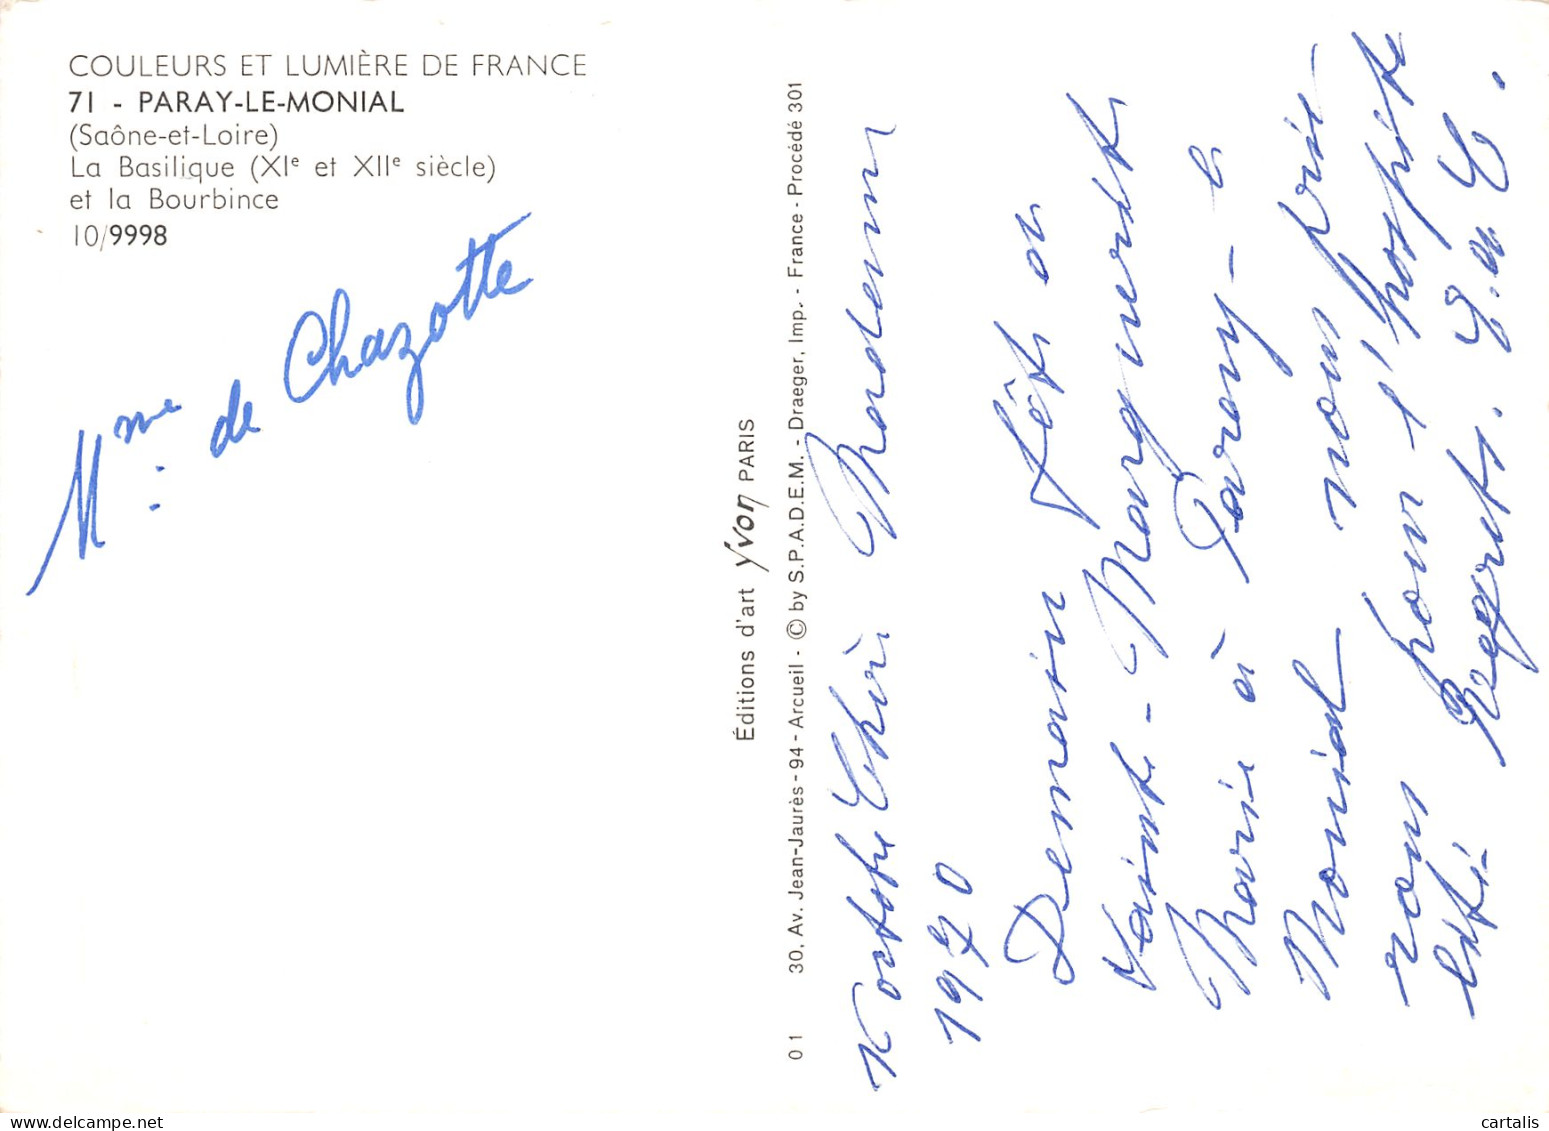 COULEURS ET LUMIÈRE DE FRANCE
71 - PARAY-LE-MONIAL
(Saône-et-Loire)
La Basilique (XIe et XIIe siècle)
et la Bourbince
10/9998
Mme de Chazotte
Éditions d'art yvon PARIS
01 30, Av. Jean-Jaurès - 94 - Arcueil - © by S.P.A.D.E.M. - Draeger, Imp. - France - Procédé 301
octobre Chère Madame
1970
Demain fête de
Sainte-Marguerite
Marie à Paray-le
Monial nous prie-
rons pour l'hospita
lité Regrets.
cartalis